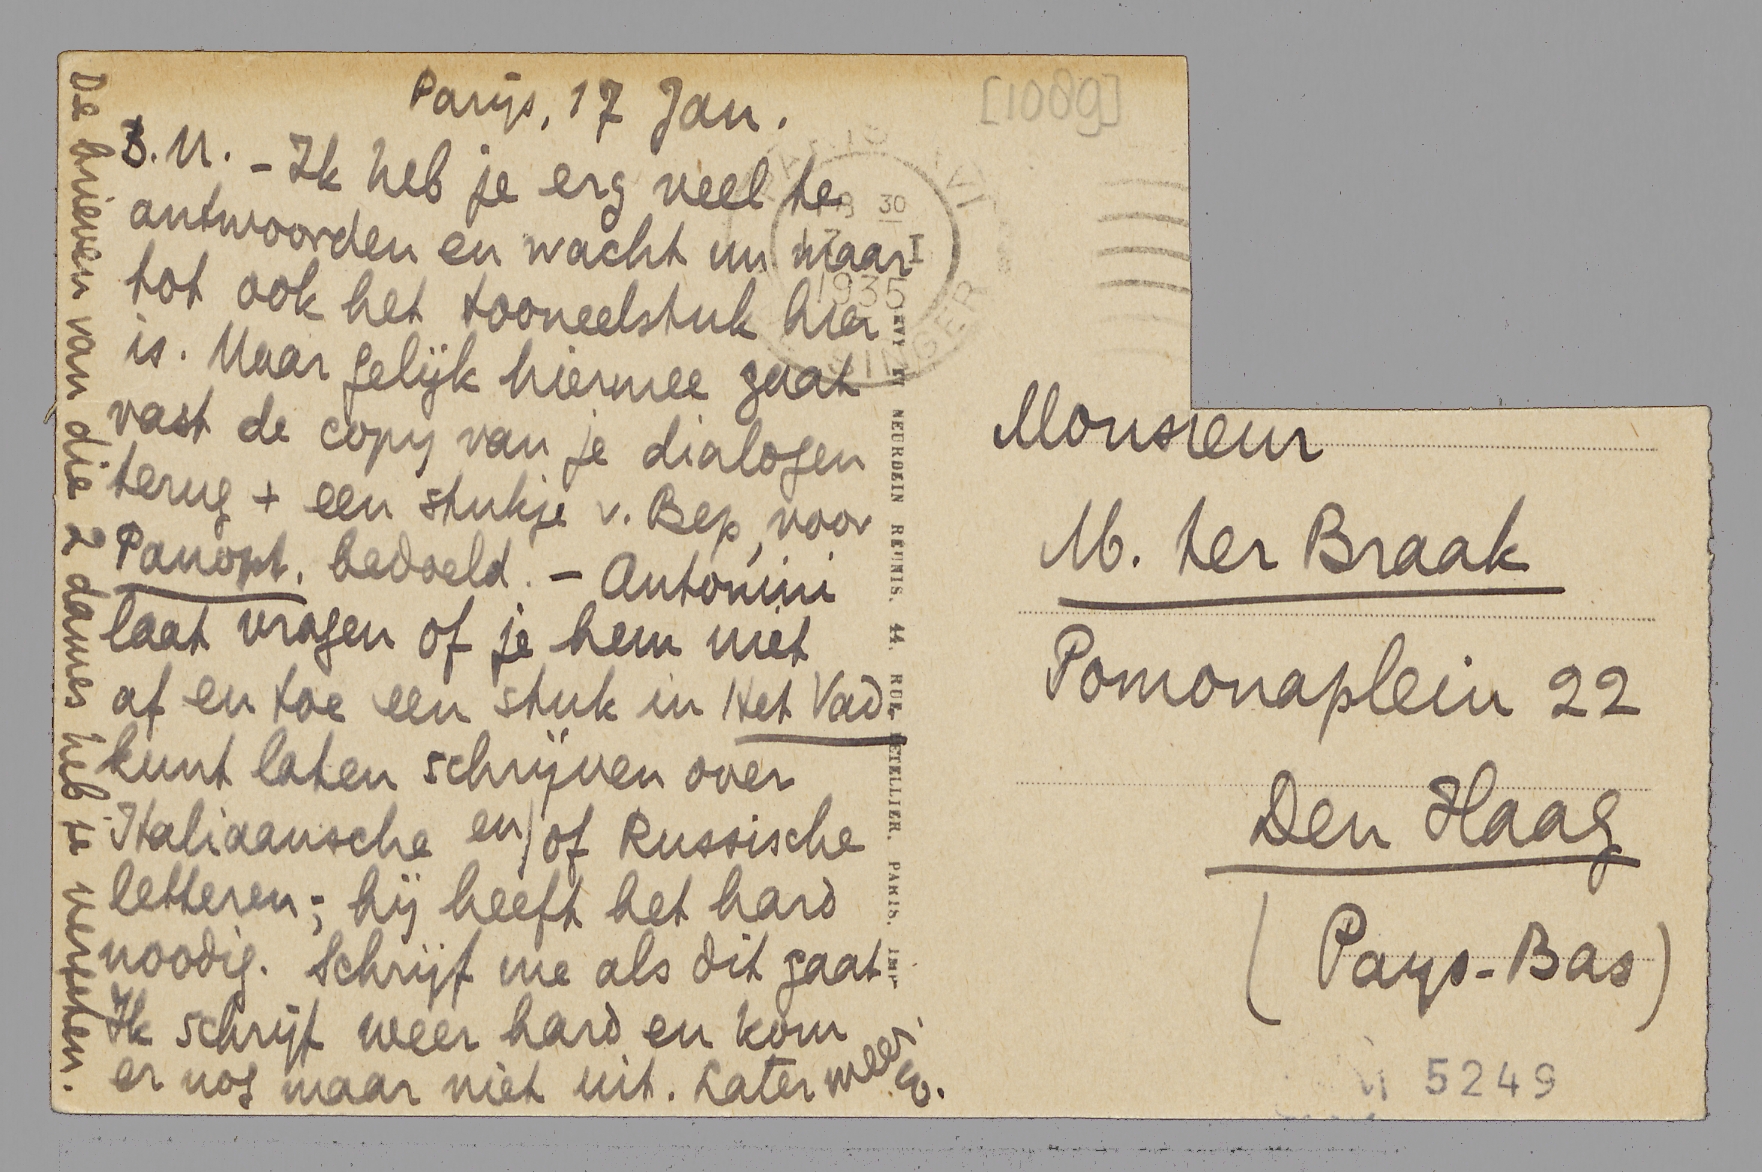 Parijs, 17 Jan.
B.M. - Ik heb je erg veel te
antwoorden en wacht nu maar
tot ook het tooneelstuk hier
is. Maar gelijk hiermee gaat
vast de copy van je dialogen
terug + een stukje v. Bep, voor
Panopt. bedoeld. - Antonini
laat vragen of je hem niet
af en toe een stuk in Het Vad.
kunt laten schrijven over
Italiaansche en/of Russische
letteren; hij heeft het hard
noodig. Schrijf me als dit gaat.
Ik schrijf weer hard en kom
er nog maar niet uit. Later weer.
E.
De brieven van die 2 dames heb te
[1089]
PARIS XVI
30
I
1935
SINGER
LEVY ET NEURDEIN REUNIS, 44, RUE LETELLIER, PARIS. IMP
Monsieur
M. ter Braak
Pomonaplein 22
Den Haag
(Pays-Bas)
M 5249